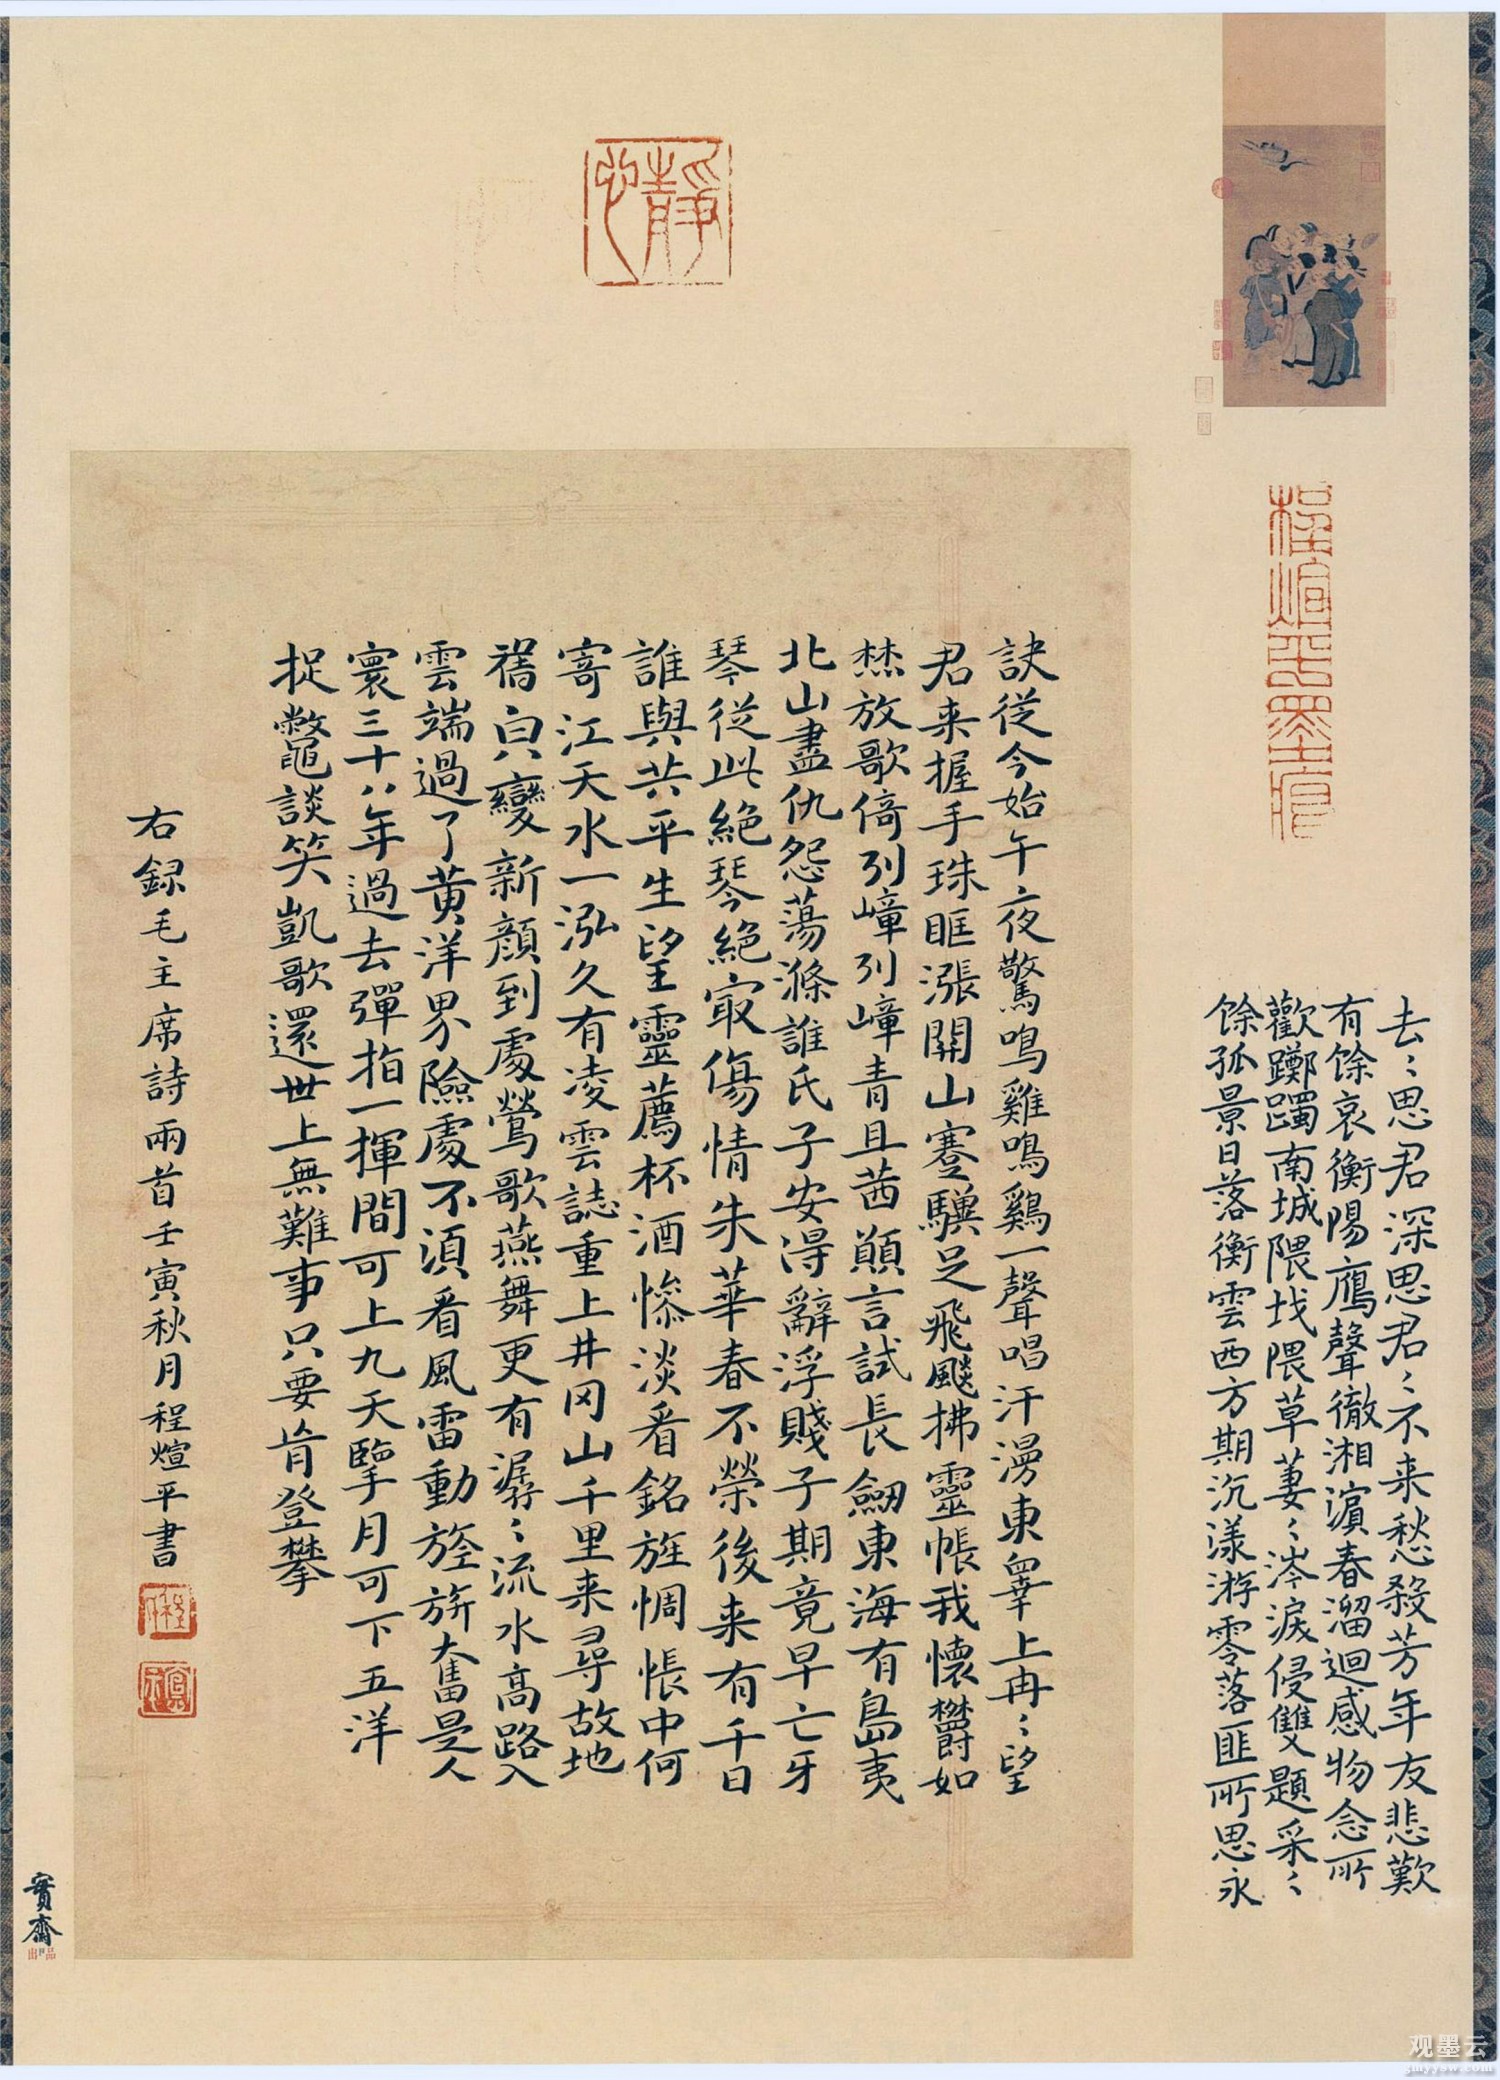 去〻思君深思君〻不来愁殺芳年友悲歎
有馀哀衡陽鴈聲徹湘濵春溜迴感物念所
歡躑躅南城隈城隈草萋〻涔淚侵雙題采〻
馀孤景日落衡雲西方期沆瀁游零落匪所思永
訣從今始午夜驚鳴雞鳴鷄一聲唱汗漫東睾上冉〻望
君来握手珠眶漲關山蹇驥足飛飈拂靈帳我懷欝如
焚放歌倚列嶂列嶂青且茜願言試長劒東海有島夷
北山盡仇怨蕩滌誰氏子安得辭浮賤子期竟早亡牙
琴從此絶琴絶㝡傷情朱華春不榮後来有千日
誰與共平生望靈薦杯酒慘淡看銘旌惆悵中何
寄江天水一泓久有凌雲誌重上井冈山千里来尋故地
舊皃變新顔到處鶯歌燕舞更有潺〻流水髙路入
雲端過了黄洋界險處不湏看風雷動旌旂奮是人
寰三十八年過去彈指一揮間可上九天擥月可下五洋
捉鼈談笑凱歌還世上無難事只要肯登攀
右録毛主席詩兩首壬寅秋月程煊平書
靜心
程煊平墨痕
實齋
出品
观墨云
gmyysw.com